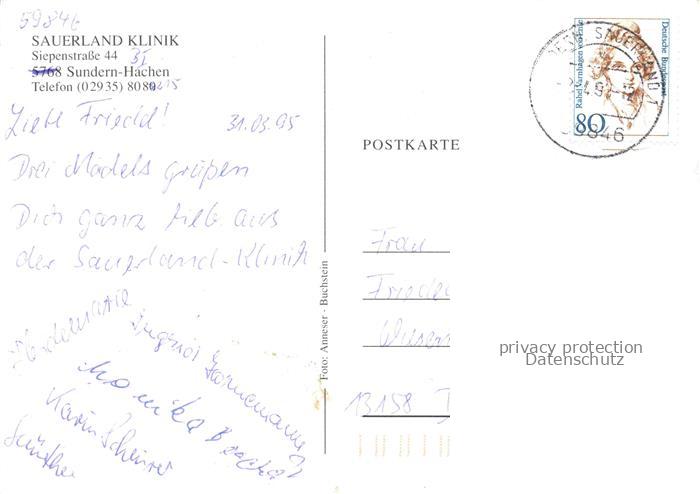 59846
SAUERLAND KLINIK
Siepenstraße 44
5768 Sundern-Hachen
Telefon (02935) 8080
Liebe Friedel!
31.03.95
Drei Mädels grüßen
Dich ganz lieb aus
der Sauerland-Klinik
Heidemarie
Ingrid Hannemann
Monika
Karin
POSTKARTE
Foto: Anneser - Buchstein
Frau
Friede
13158
Deutsche Bundespost
Rahel Varnhagen von Ense
80
SAUERLAND 1
privacy protection
Datenschutz